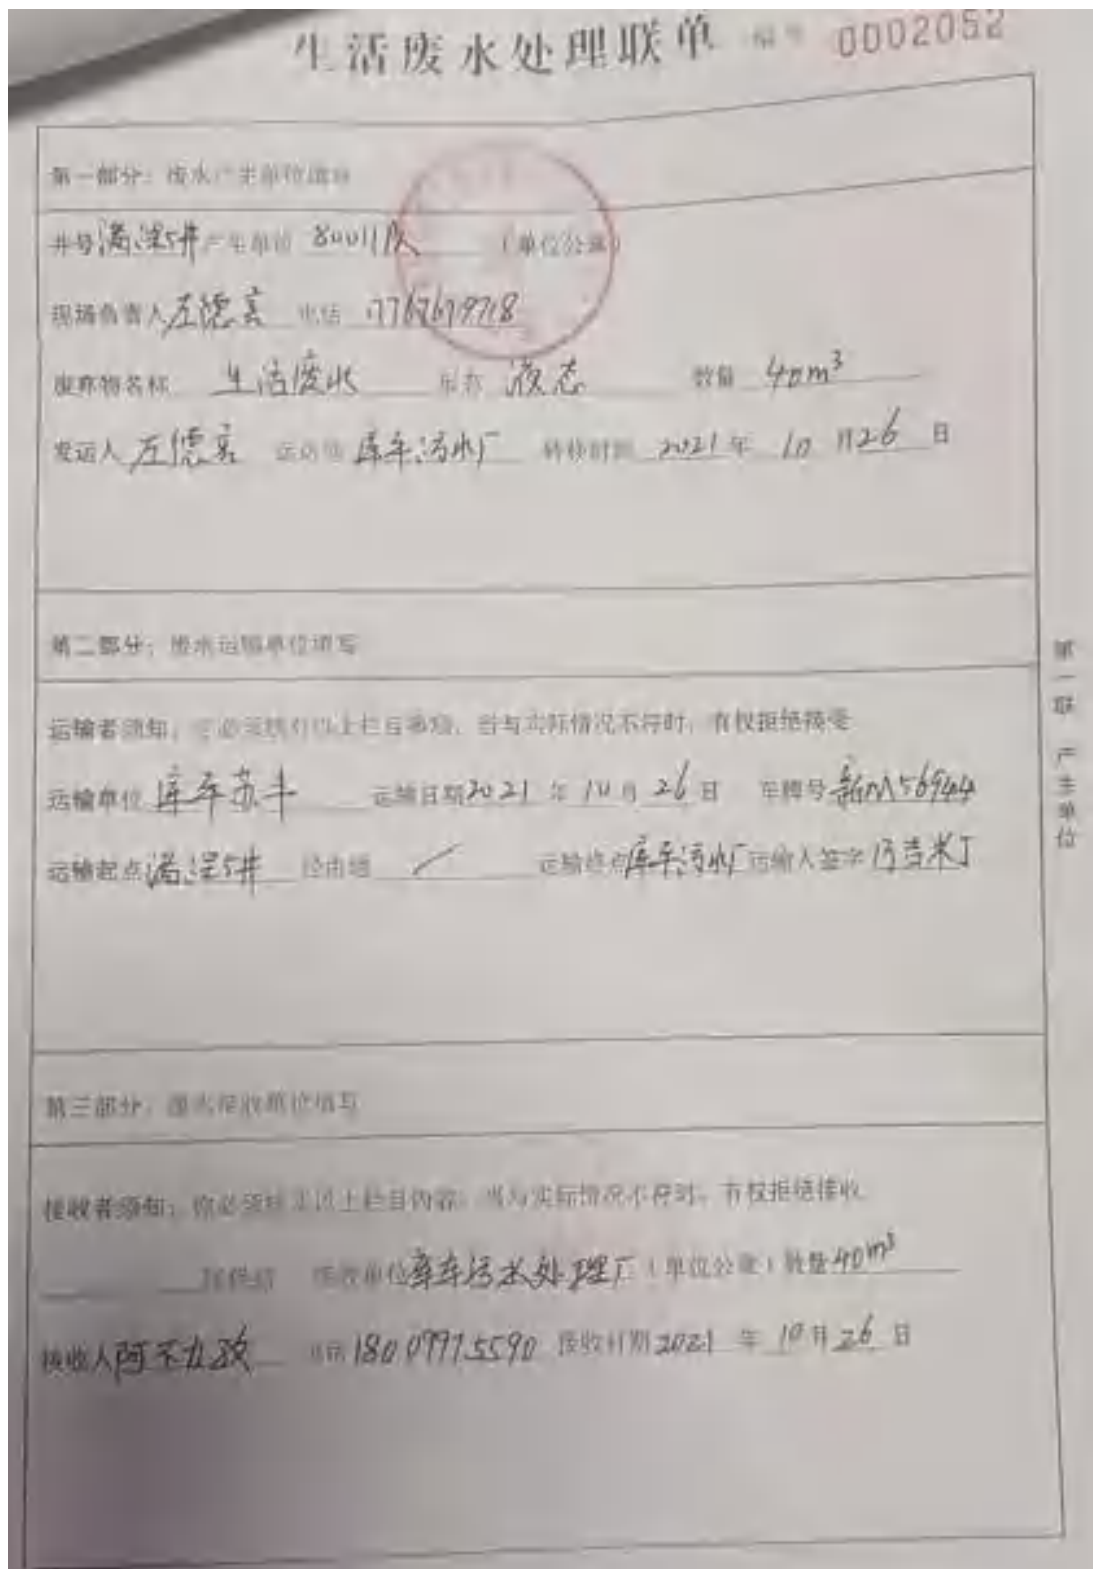 生活废水处理联单 编号 0002052
第一部分：废水产生单位填写
井号满深5井产生单位 80011队 （单位公章）
现场负责人左德亮 电话 17767679718
废弃物名称 生活废水 形态 液态 数量 40m³
发运人左德亮 运达地 库车污水厂 转移时间 2021年 10月26日
第二部分：废水运输单位填写
运输者须知：你必须核对以上栏目事项，当与实际情况不符时，有权拒绝接受
运输单位 库车苏丰 运输日期2021年10月26日 车牌号
运输起点满深5井 经由地 / 运输终点库车污水厂运输人签字 吉米丁
第三部分：废水接收单位填写
接收者须知：你必须核实以上栏目内容，当与实际情况不符时，有权拒绝接收
接收单位库车污水处理厂（单位公章）数量40m³
接收人 电话18009975590 接收日期2021年10月26日
第一联 产生单位